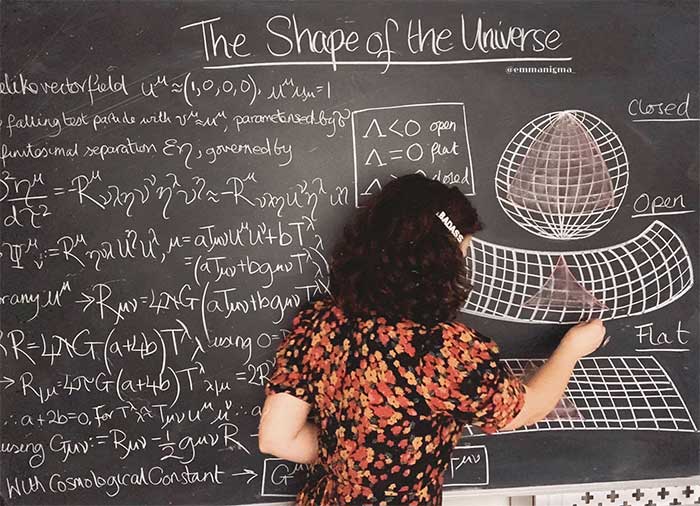 The Shape of the Universe
@emmanigma_
vector field u^μ≈(1,0,0,0), u^μu_μ=1
falling test particle with v^μ≈u^μ, parameterised by τ
infinitesimal separation εη, governed by
= -R^μ_νλη v^ν η^λ v^η ≈ -R
Ψ^μ_ν := R^μ_ηλν u^η u^λ, μ = aT_μν u^μ u^ν + bT^λ_λ
= (aT_μν + bg_μν T^λ
any u^μ → R_μν = 4πG(aT_μν + bg_μν T^λ
R = 4πG(a+4b)T^λ_λ using 0=
→ R_|μ = 4πG(a+4b)T^λ_λ|μ = 2R
∴ a+2b=0. For T^λ_λ ≈ T_μν u^μ u^ν ∴
using G_μν := R_μν - 1/2 g_μν R
With Cosmological Constant → G^μν
T^μν
Λ<0 open
Λ=0 flat
closed
BADASS
Closed
Open
Flat